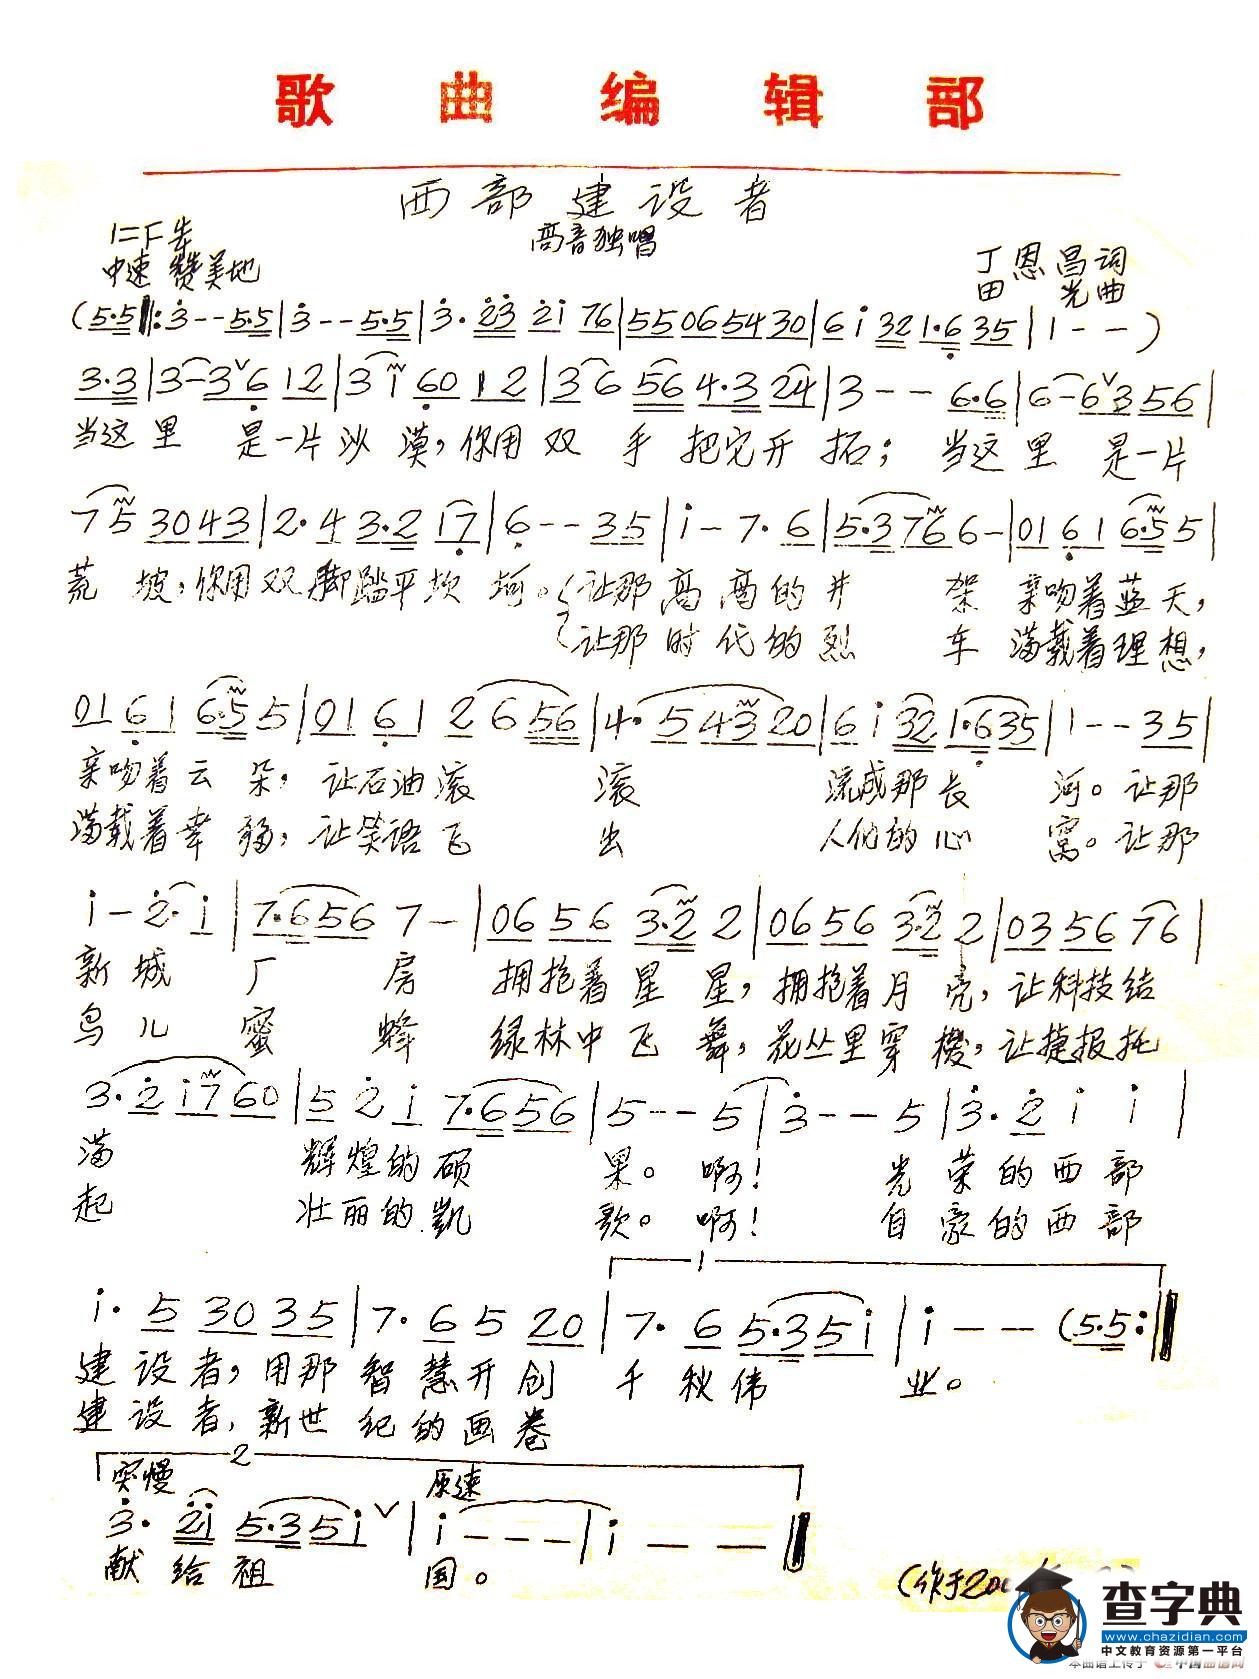 歌曲编辑部
西部建设者
高音独唱
1=F 4/4
中速 赞美地
丁恩昌词
田光曲
(5·5‖:3--5·5|3--5·5|3·23 21 76|55065430|6 1 32 1·6 35|1--)
3·3|3-3∨6 12|3 1 60 12|3 6 56 4·3 24|3--6·6|6-6∨3 56|
当这里 是一片沙漠，你用双手把它开拓；当这里是一片
75 3043|2·4 3·2 17|6--35|1-7·6|5·3 76 6-|01 61 6·5 5|
荒坡，你用双脚踏平坎坷。让那高高的井架 亲吻着蓝天，
让那时代的烈车 满载着理想，
01 61 6·5 5|01 61 2 6 56|4·5 43 20|6 1 32 1·6 35|1--35|
亲吻着云朵，让石油滚滚 流成那长河。让那
满载着幸福，让笑语飞出 人们的心窝。让那
1-2·1|7·6 56 7-|06 56 3·2 2|06 56 3·2 2|03 56 76|
新城厂房 拥抱着星星，拥抱着月亮，让科技结
鸟儿蜜蜂 绿林中飞舞，花丛里穿梭，让捷报托
3·2 17 60|5 2 1 7·6 56|5--5|3--5|3·2 1 1|
满 辉煌的硕果。啊！ 光荣的西部
起 壮丽的凯歌。啊！ 自豪的西部
1
1·5 30 35|7·6 5 20|7·6 5·3 51|1--(5·5:‖
建设者，用那智慧开创千秋伟业。
建设者，新世纪的画卷
2
突慢 原速
3·21 5·3 51∨|1---|1--‖
献给祖国。
(作于200
查字典
www.chazidian.com
中文教育资源第一平台
本曲谱上传于 中国曲谱网